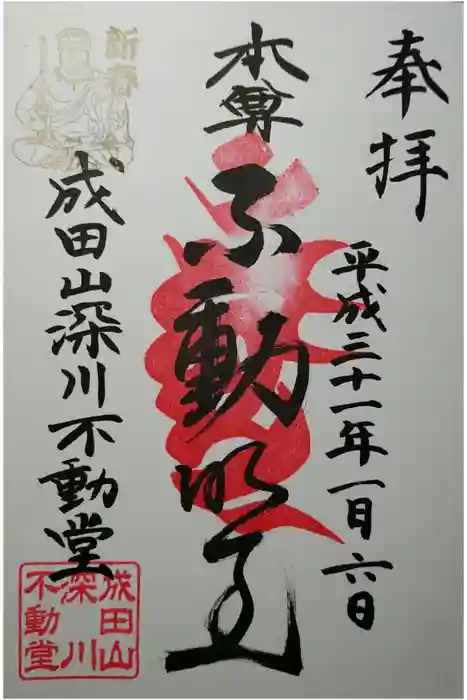 奉拝
平成三十一年一月六日
本尊
不動明王
新春
成田山深川不動堂
成田山
深川
不動堂